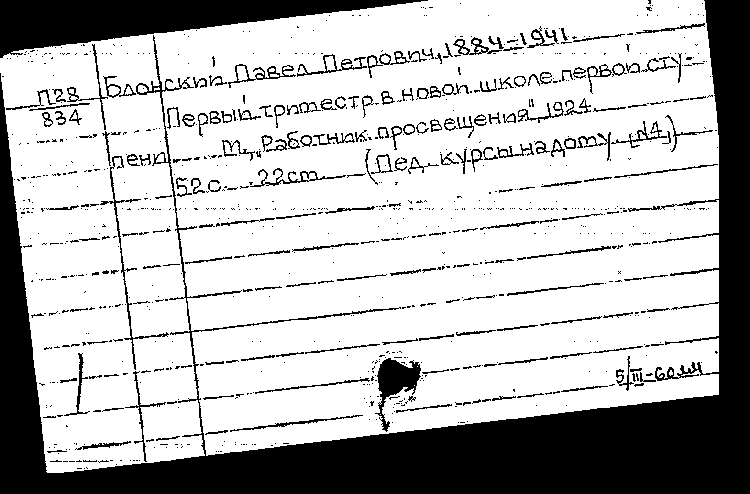 Блонский, Павел Петрович, 1884-1941.
П28
834
Первый триместр в новой школе первой сту-
пени М., „Работник просвещения", 1924.
52с. 22cm (Пед. курсы на дому [№4])
5/III-60